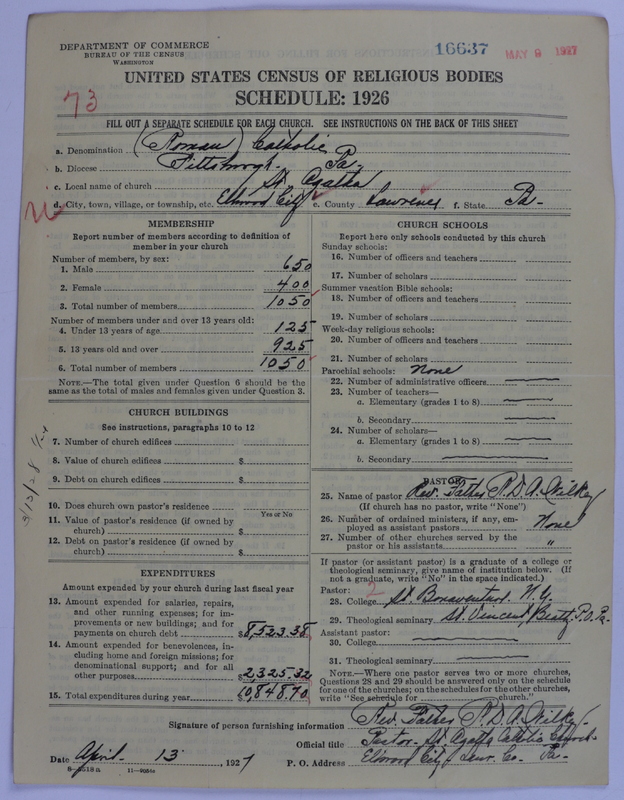 DEPARTMENT OF COMMERCE
BUREAU OF THE CENSUS
WASHINGTON
16637
MAY 9 1927
UNITED STATES CENSUS OF RELIGIOUS BODIES
73
SCHEDULE: 1926
FILL OUT A SEPARATE SCHEDULE FOR EACH CHURCH. SEE INSTRUCTIONS ON THE BACK OF THIS SHEET
a. Denomination (Roman) Catholic
b. Diocese Pittsburgh. Pa.
c. Local name of church St. Agatha
d. City, town, village, or township, etc. Ellwood City e. County Lawrence f. State Pa-
MEMBERSHIP
Report number of members according to definition of
member in your church
Number of members, by sex:
1. Male 650
2. Female 400
3. Total number of members 1050
Number of members under and over 13 years old:
4. Under 13 years of age 125
5. 13 years old and over 925
6. Total number of members 1050
NOTE.—The total given under Question 6 should be
the same as the total of males and females given under Question 3.
CHURCH BUILDINGS
See instructions, paragraphs 10 to 12
7. Number of church edifices
8. Value of church edifices $
9. Debt on church edifices $
10. Does church own pastor's residence
Yes or No
11. Value of pastor's residence (if owned by
church) $
12. Debt on pastor's residence (if owned by
church) $
EXPENDITURES
Amount expended by your church during last fiscal year
13. Amount expended for salaries, repairs,
and other running expenses; for im-
provements or new buildings; and for
payments on church debt $8,523.38
14. Amount expended for benevolences, in-
cluding home and foreign missions; for
denominational support; and for all
other purposes $2325.32
15. Total expenditures during year 10,848.70
CHURCH SCHOOLS
Report here only schools conducted by this church
Sunday schools:
16. Number of officers and teachers
17. Number of scholars
Summer vacation Bible schools:
18. Number of officers and teachers
19. Number of scholars
Week-day religious schools:
20. Number of officers and teachers
21. Number of scholars
Parochial schools: None
22. Number of administrative officers
23. Number of teachers—
a. Elementary (grades 1 to 8)
b. Secondary
24. Number of scholars—
a. Elementary (grades 1 to 8)
b. Secondary
PASTOR
25. Name of pastor Rev. Father P. D. A. Wilkey
(If church has no pastor, write "None")
26. Number of ordained ministers, if any, em-
ployed as assistant pastors None
27. Number of other churches served by the
pastor or his assistants "
If pastor (or assistant pastor) is a graduate of a college or
theological seminary, give name of institution below. (If
not a graduate, write "No" in the space indicated.)
Pastor: 2
28. College St. Bonaventure N.Y.
29. Theological seminary St. Vincent, Beatty P.O. Pa.
Assistant pastor:
30. College
31. Theological seminary
NOTE.—Where one pastor serves two or more churches,
Questions 28 and 29 should be answered only on the schedule
for one of the churches; on the schedules for the other churches,
write "See schedule for church."
Signature of person furnishing information Rev. Father P. D. A. Wilkey.
Official title Pastor. St. Agatha Catholic Church.
Date April 13, 1927 P. O. Address Ellwood City Lawr. Co. Pa-
11—9054a